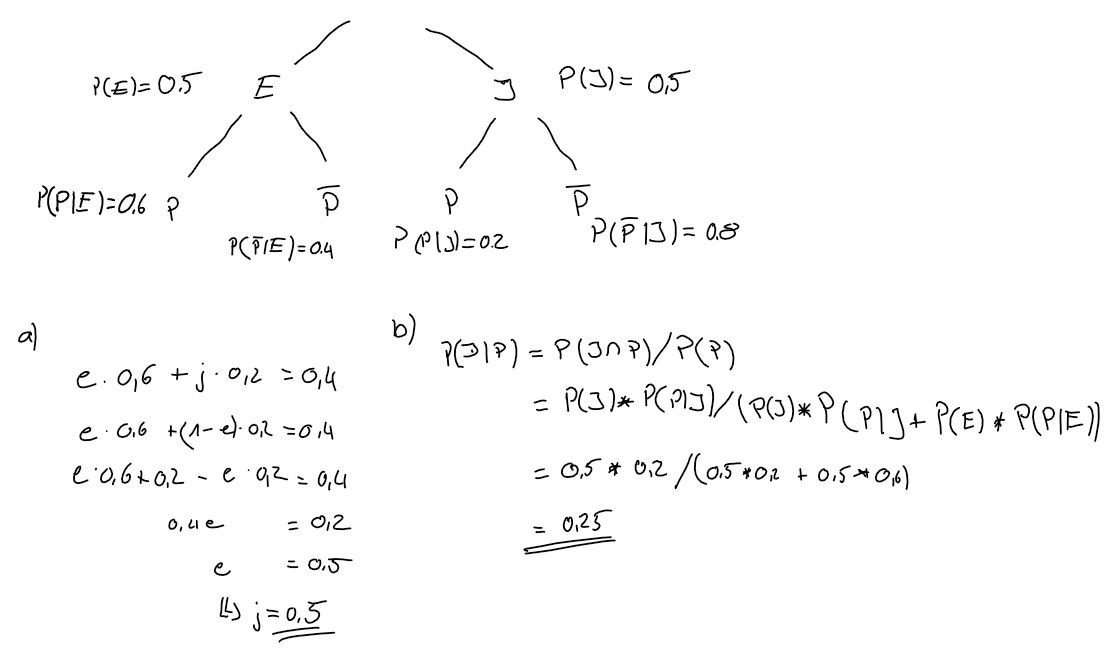 P(E)=0.5 E J P(J)= 0,5
P(P|E)=0.6 P P̅ P P̅
P(P̅|E)=0.4 P(P|J)=0.2 P(P̅|J)=0.8
a)
e·0,6 + j·0,2 =0,4
e·0.6 +(1-e)·0,2=0,4
e·0,6+0,2 - e·0,2=0,4
0,4e =0,2
e =0.5
↳ j=0,5
b)
P(J|P) = P(J∩P)/P(P)
= P(J)* P(P|J)/(P(J)*P(P|J + P(E)*P(P|E))
= 0,5 * 0,2 /(0,5*0,2 + 0,5*0,6)
= 0,25